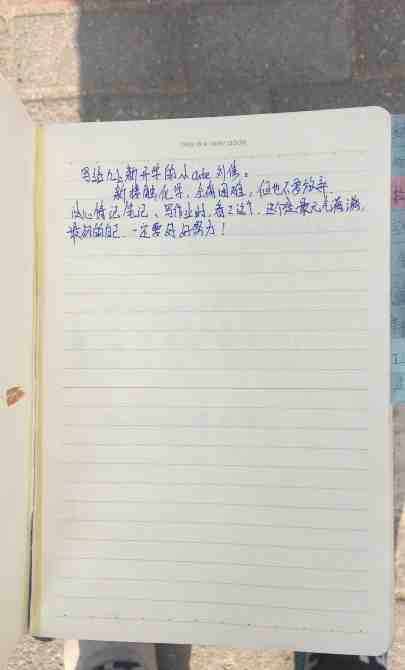 写给九上新开学的小cute刘佳。
新接触化学,会有困难,但也不要放弃
心情记笔记、写作业时,看看这个,这个是最元气满满,
最初的自己,一定要好好努力!